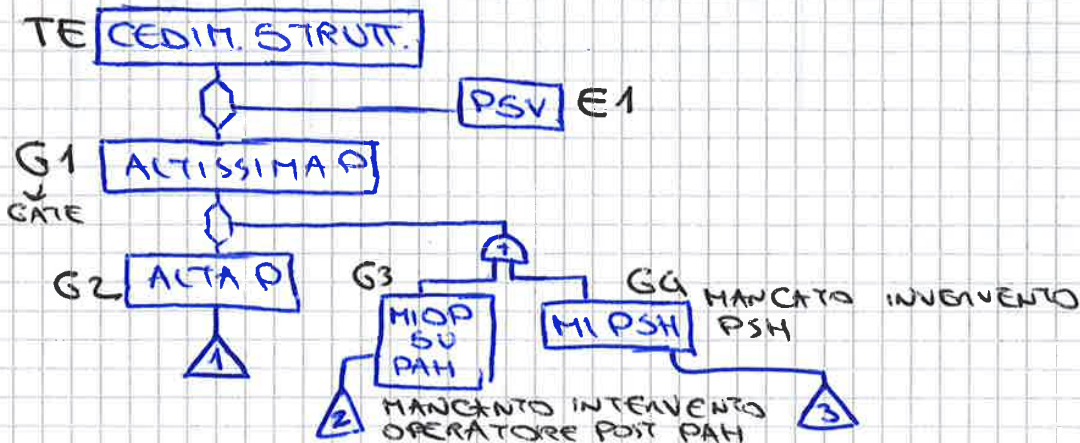 TE CEDIM. STRUTT.
PSV E1
G1 ALTISSIMA P
GATE
G2 ALTA P
G3
G4
MANCATO INVERVENTO
PSH
MIOP
SU
PAH
MI PSH
1
2
3
MANCANTO INTERVENTO
OPERATORE POST PAH